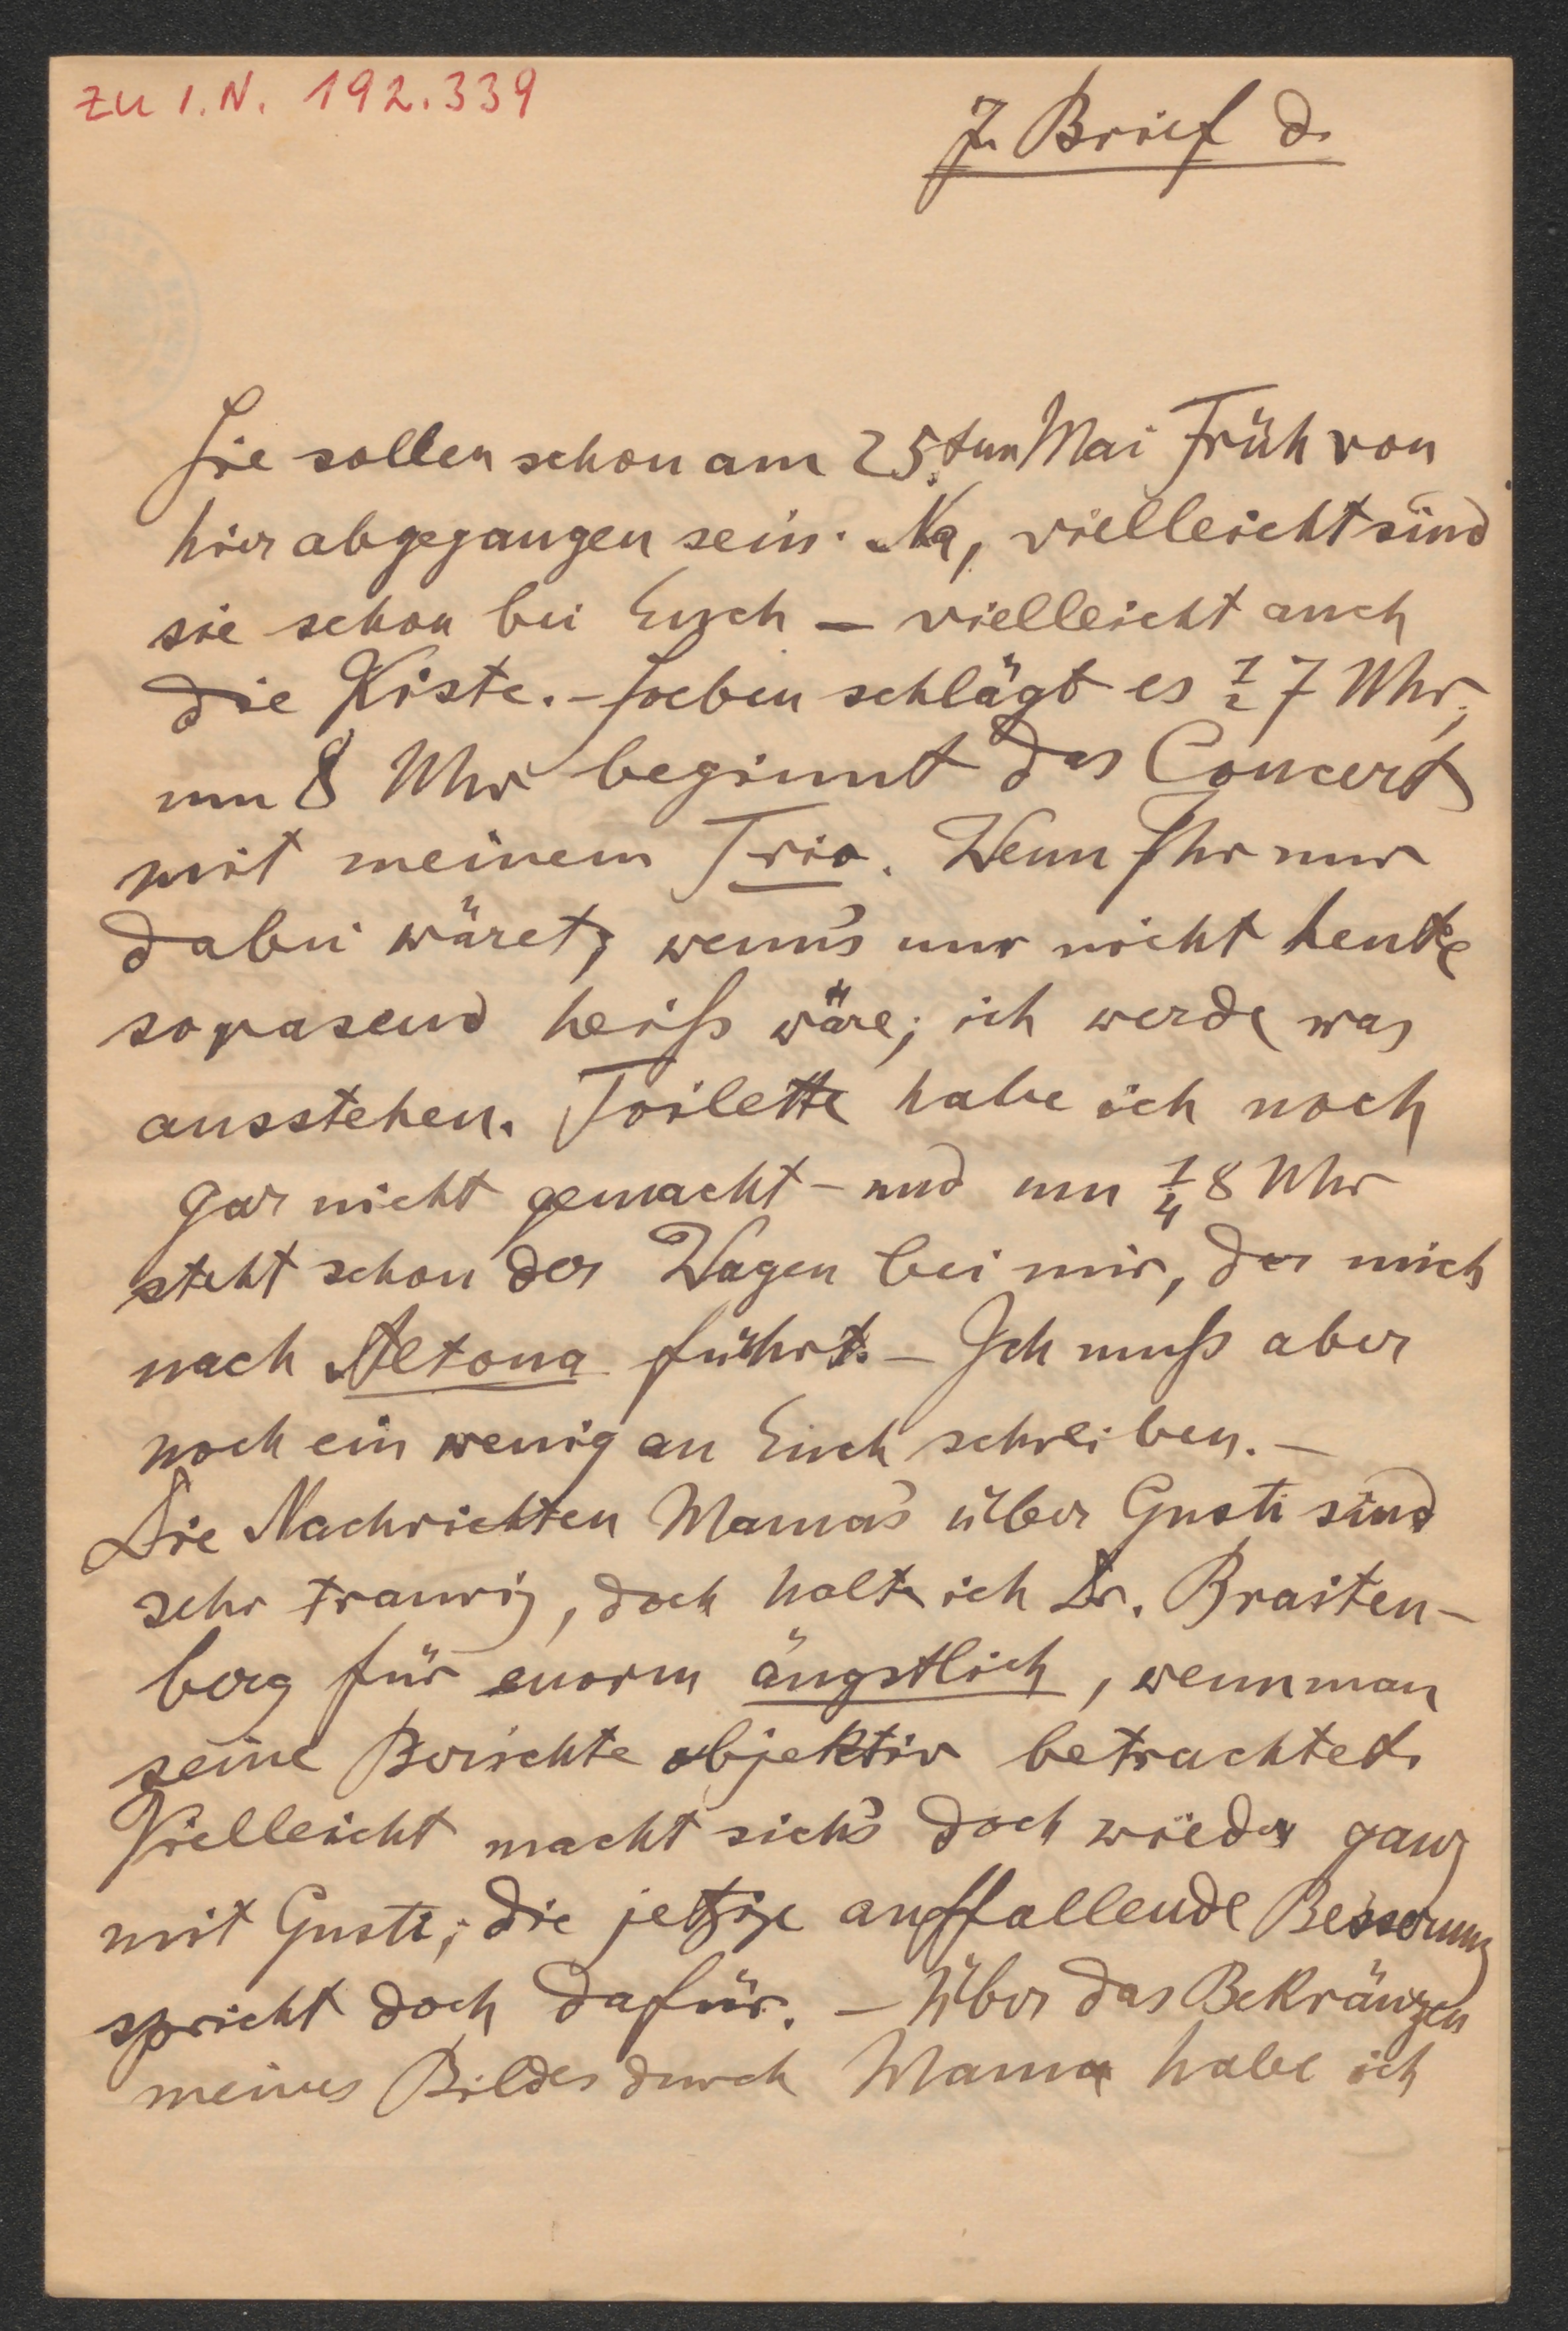 zu I.N. 192.339
7. Brief d.
Sie sollen schon am 25.ten Mai Früh von
hier abgegangen sein. Na, vielleicht sind
sie schon bei Euch – vielleicht auch
die Kiste. – Soeben schlägt es ½ 7 Uhr;
um 8 Uhr beginnt das Concert
mit meinem Trio. Wenn Ihr nur
dabei wäret, wenn's nur nicht heute
so rasend heiß wäre; ich werde was
ausstehen. Toilette habe ich noch
gar nicht gemacht – und um ¼ 8 Uhr
steht schon der Wagen bei mir, der mich
nach Altona führt. – Ich muß aber
noch ein wenig an Euch schreiben. –
Die Nachrichten Mama's über Gusti sind
sehr traurig, doch halte ich Dr. Braiten-
berg für enorm ängstlich, wenn man
seine Berichte objektiv betrachtet.
Vielleicht macht sich's doch wieder ganz
mit Gusti; die jetzige auffallende Besserung
spricht doch dafür. – Über das Bekränzen
meines Bildes durch Mama habe ich